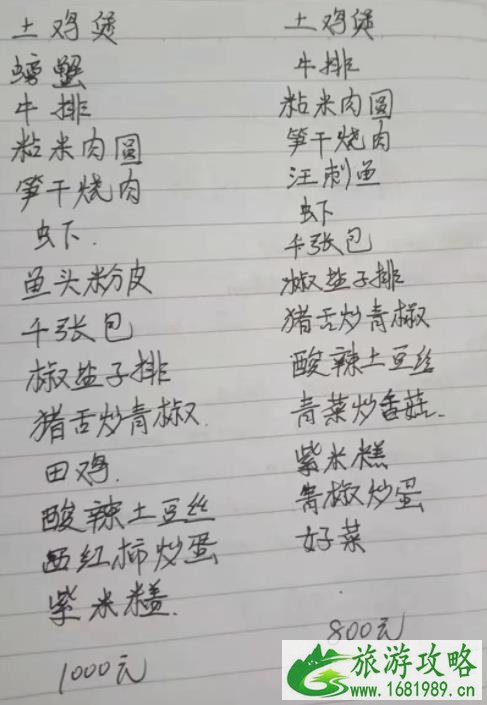 土鸡煲
螃蟹
牛排
粘米肉圆
笋干烧肉
虾
鱼头粉皮
千张包
椒盐子排
猪舌炒青椒
田鸡
酸辣土豆丝
西红柿炒蛋
紫米糕
1000元
土鸡煲
牛排
粘米肉圆
笋干烧肉
汪刺鱼
虾
千张包
椒盐子排
猪舌炒青椒
酸辣土豆丝
青菜炒香菇
紫米糕
青椒炒蛋
好菜
800元
旅游攻略
www.1681989.cn